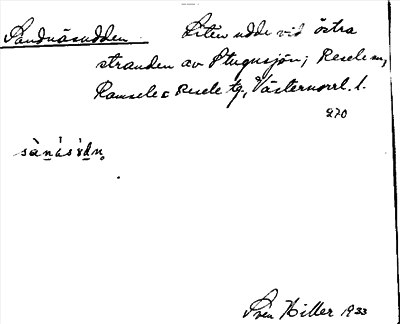 Sandnäsudden. Liten udde vid östra
stranden av Stugusjön; Resele sn,
Ramsele o Resele tg, Västernorrl. l.
270
sànásùdn̥
Sven Hiller 1933